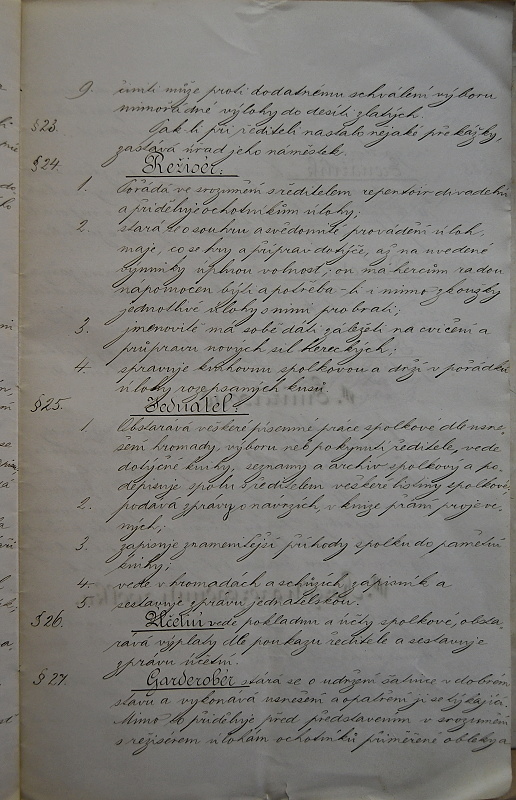 9. činiti může proti dodatnému schválení výboru
mimořádné výlohy do desíti zlatých.
§ 23. Jak-li při řediteli nastalo nějaké překážky,
zastává úřad jeho náměstek.
§ 24. Režisér:
1. Pořádá ve srozumění s ředitelem repertoir divadelní
a přiděluje ochotníkům úlohy;
2. stará se o souhru a svědomité provádění úloh,
maje, co se hry a příprav dotýče, až na uvedené
výminky úplnou volnost; on má hercům radou
nápomocen býti a potřeba-li i mimo zkoušky
jednotlivé úlohy s nimi probrati;
3. jmenovitě má sobě dáti záležeti na cvičení a
průpravu nových sil hereckých;
4. spravuje knihovnu spolkovou a drží v pořádku
úlohy rozepsaných kusů.
§ 25. Jednatel:
1. Obstarává veškeré písemné práce spolkové dle usne-
šení hromady, výboru neb pokynutí ředitele, vede
dotyčné knihy, seznamy a archiv spolkový a po-
depisuje spolu s ředitelem veškeré listiny spolkové;
2. podává zprávy o návrzích, v knize přání proje ve-
ných;
3. zapisuje znamenitější příhody spolku do pamětní
knihy;
4. vede v hromadách a schůzích zápisník a
5. sestavuje zprávu jednatelskou.
§ 26. Účetní vede pokladnu a účty spolkové, obsta-
rává výplaty dle poukazu ředitele a sestavuje
zprávu účetní.
§ 27. Garderobér stará se o udržení šatnice v dobrém
stavu a vykonává usnešení a opatření jí se týkající.
Mimo to přiděluje před představením v srozumění
s režisérem úlohám ochotníků přiměřené obleky a